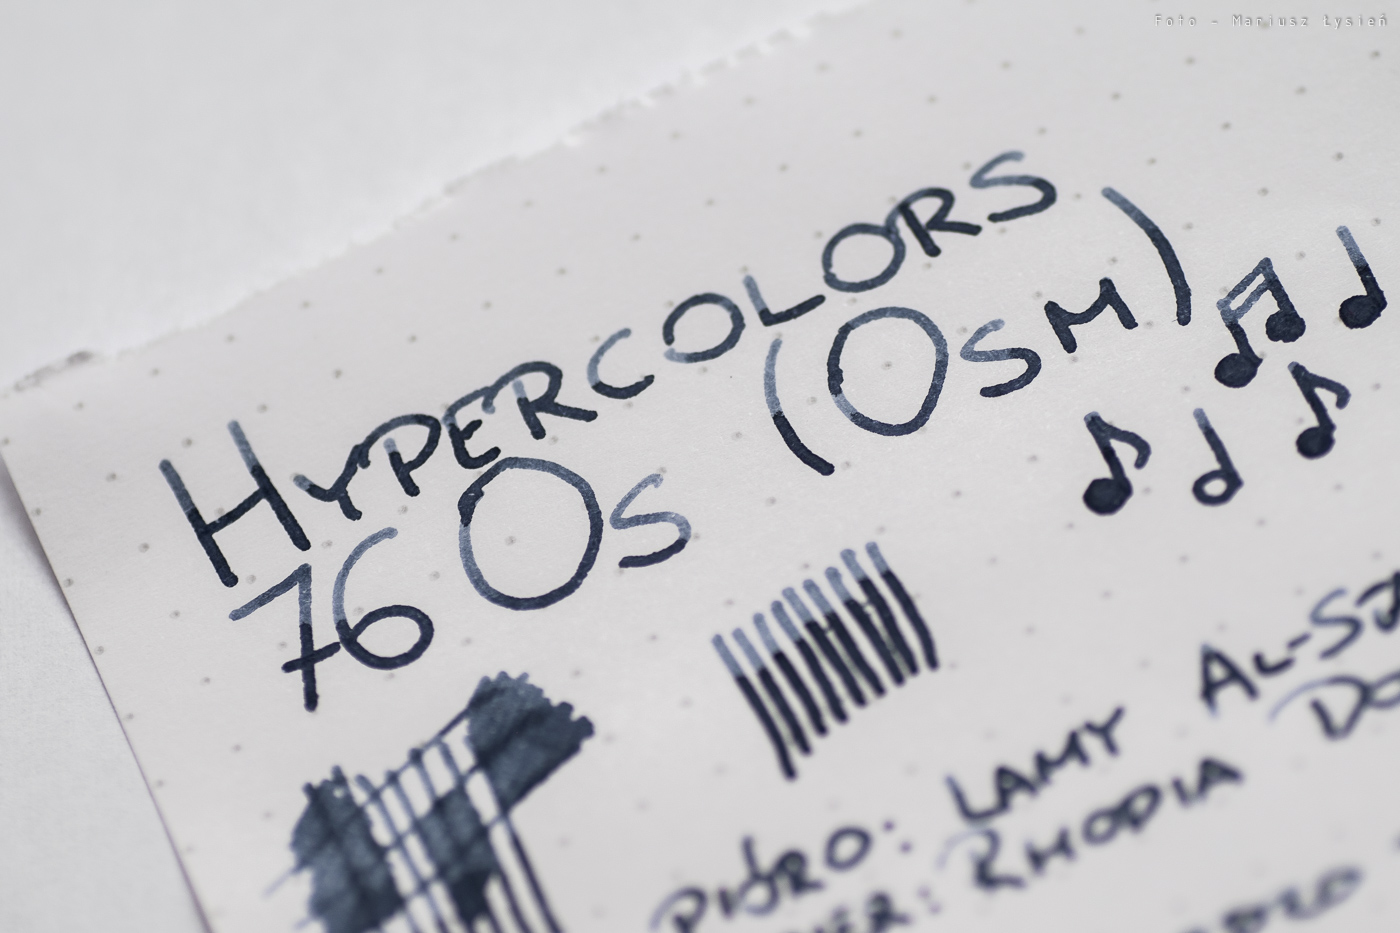 Foto - Mariusz Łysień
HYPERCOLORS
76 Os (OSM)
PIÓRO: LAMY AL-
RHODIA